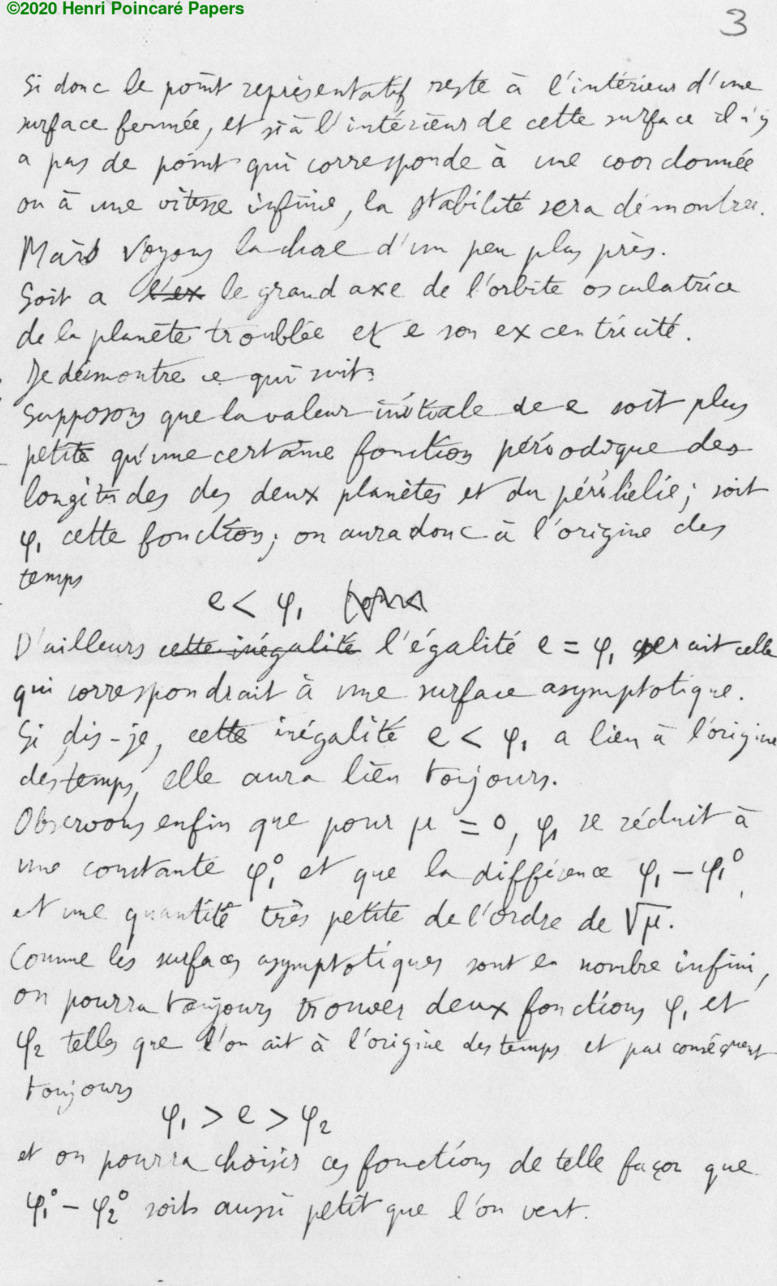 ©2020 Henri Poincaré Papers
3
Si donc le point représentatif reste à l'intérieur d'une
surface fermée, et si à l'intérieur de cette surface il n'y
a pas de point qui corresponde à une coordonnée
ou à une vitesse infinie, la stabilité sera démontrée.
Mais voyons la chose d'un peu plus près.
Soit a l'ex le grand axe de l'orbite osculatrice
de la planète troublée et e son excentricité.
Je démontre ce qui suit:
Supposons que la valeur initiale de e soit plus
petite qu'une certaine fonction périodique des
longitudes des deux planètes et du périhélie; soit
φ₁ cette fonction; on aura donc à l'origine des
temps
e < φ₁
D'ailleurs cette inégalité l'égalité e = φ₁ serait celle
qui correspondrait à une surface asymptotique.
Si, dis-je, cette inégalité e < φ₁ a lieu à l'origine
des temps, elle aura lieu toujours.
Observons enfin que pour μ = 0, φ₁ se réduit à
une constante φ₁⁰ et que la différence φ₁ − φ₁⁰
est une quantité très petite de l'ordre de √μ.
Comme les surfaces asymptotiques sont en nombre infini,
on pourra toujours trouver deux fonctions φ₁ et
φ₂ telles que l'on ait à l'origine des temps et par conséquent
toujours
φ₁ > e > φ₂
et on pourra choisir ces fonctions de telle façon que
φ₁⁰ − φ₂⁰ soit aussi petit que l'on veut.